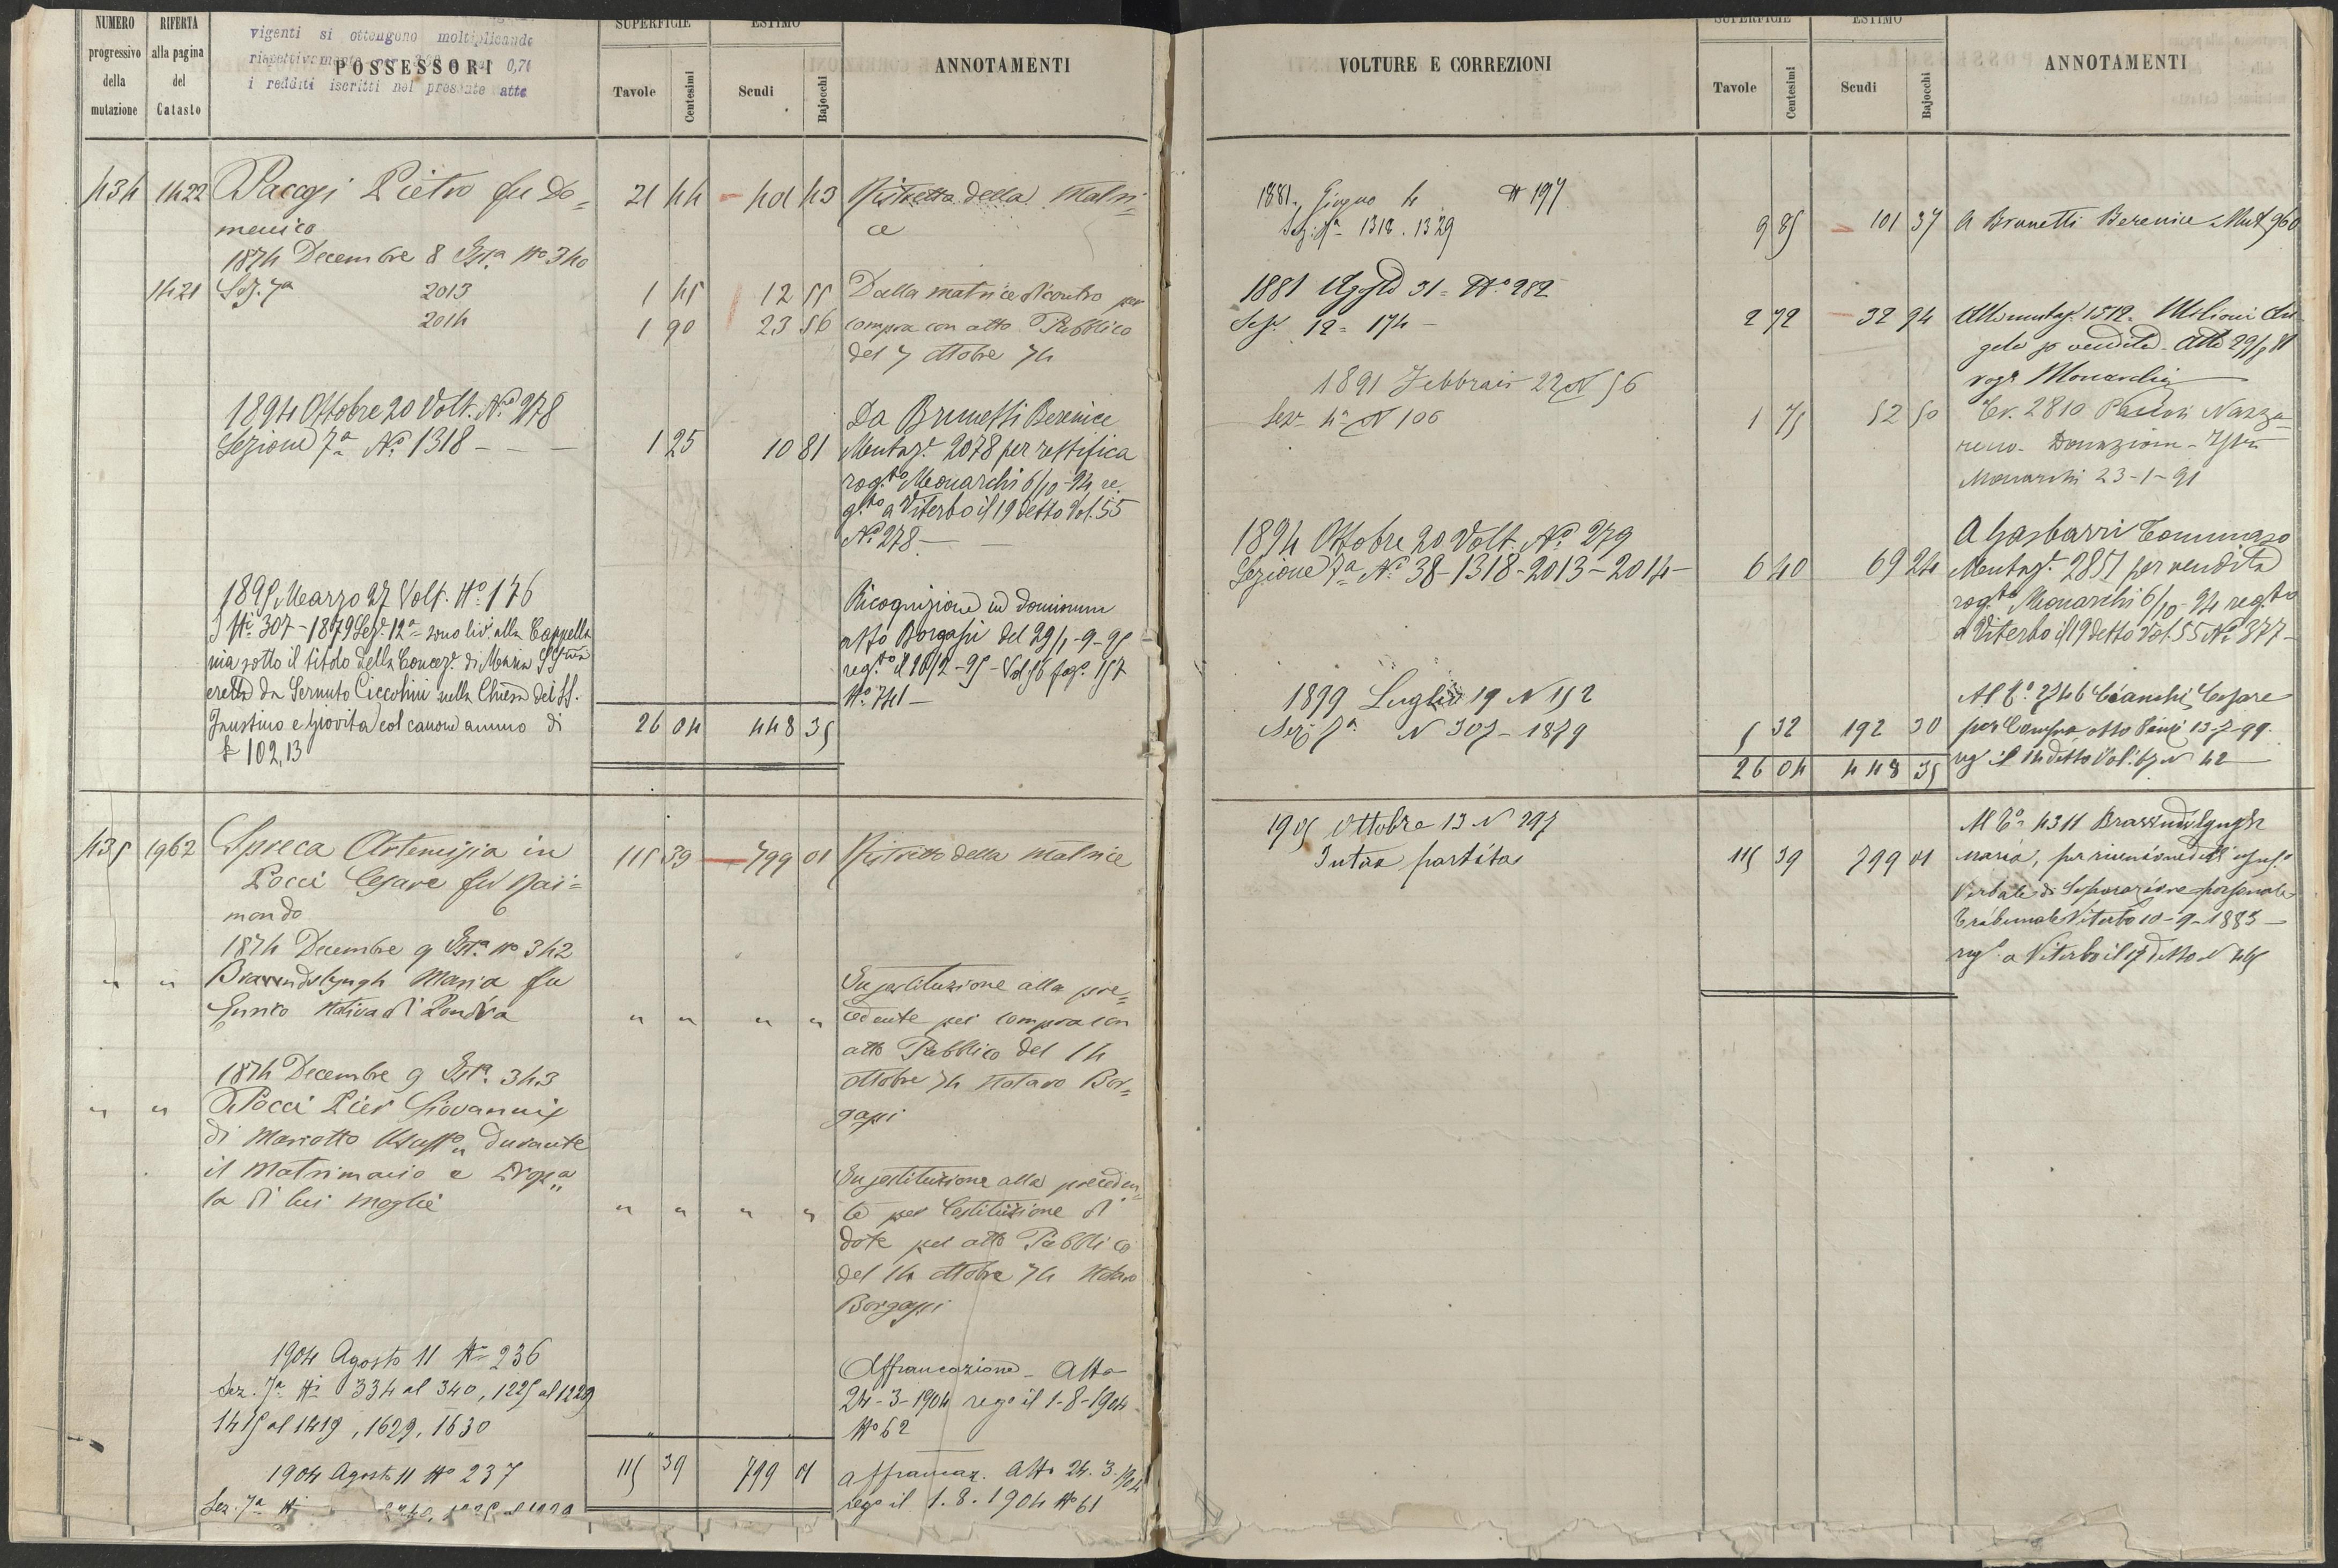 NUMERO
progressivo
della
mutazione
RIFERTA
alla pagina
del
Catasto
vigenti si ottengono moltiplicando
rispettivamente 0,71
i redditi iscritti nel presente atto
POSSESSORI
SUPERFICIE
Tavole
Centesimi
ESTIMO
Scudi
Bajocchi
ANNOTAMENTI
434 1422 Pacczi Pietro fu Do= 21 44 401 43 Ristretto della Matri=
menico ce
1874 Decembre 8 Ist.a No 340
1421 Sez. 7a 2013 1 45 12 55 Dalla matrice di contro per
2014 1 90 23 56 compra con atto Pubblico
del 7 ottobre 74
1894 Ottobre 20 Volt. No 278 Da Brunetti Berenice
Sezione 7a No 1318 - - - 1 25 10 81 Mutaz.e 2078 per rettifica
rog.to Monarchi 6/10-94 re
g.to a Viterbo il 19 detto Vol. 55
No 278 -
1895 Marzo 27 Volt. No 176 Ricognizione in dominum
I Ni 307-1879 Sez. 12a sono liv. alla Cappella atto Borgassi del 29/1-9-95
nia sotto il titolo della Concez.e di Maria SSma reg.to il 16/2-95 - Vol 56 fog. 157
eretta da Sernuto Ciccolini nella Chiesa dei SS. No 741 -
Faustino e Giovita col canone annuo di 26 04 448 35
£ 102,13
435 1962 Spreca Artemisia in 115 39 799 01 Ristretto della Matrice
Pocci Cesare fu Rai=
mondo
1874 Decembre 9 Ist.a No 342
" " Maria fu In sostituzione alla pre=
Enrico Nativa di Londra " " " " cedente per compra con
atto Pubblico del 14
1874 Decembre 9 Ist.a 343 ottobre 74 Notaro Bor=
" " Pocci Pier Giovanni gassi
di Mariotto Usuff.o durante
il Matrimonio e Prop.a In sostituzione alla preceden=
la di lui moglie " " " " te per Costituzione di
dote per atto Pubblico
del 14 ottobre 74 Notaro
Borgassi
1904 Agosto 11 No 236 Affrancazione - Atto
Sez. 7a Ni 334 al 340, 1225 al 1229 24-3-1904 rego il 1-8-1904
1415 al 1419, 1629, 1630 No 62
1904 Agosto 11 No 237 115 39 799 01 affrancaz. Atto 24.3.1904
Sez. 7a Ni rego il 1.8.1904 No 61
VOLTURE E CORREZIONI
SUPERFICIE
Tavole
Centesimi
ESTIMO
Scudi
Bajocchi
ANNOTAMENTI
1881. Giugno 4 N 197
Sez. 7a 1318. 1329 9 85 101 37 A Brunetti Berenice Mut 960
1881 Agosto 31 = No 282
Sez. 12 = 174 - 2 72 32 94 All mutaz. 1512. Milioni An=
gelo p vendita. Atto
rogo Monarchi
1891 Febbraio 22 N 56
Sez. 4a N 106 1 75 52 50 Tr. 2810 Nazza=
reno. Donazione - Istro
Monarchi 23-1-91
1894 Ottobre 20 Volt. No 279 A Gasbarri Tommaso
Sezione 7a Ni 38-1318-2013-2014- 6 40 69 24 Mutaz.e 2851 per vendita
rog.to Monarchi 6/10-94 reg.to
a Viterbo il 19 detto Vol. 55 No 277-
1899 Luglio 19 N 152 Al To 2746 Cianchi Cesare
Sez. 7a N 307-1879 5 32 192 30 per Compra atto 13-7-99.
26 04 448 35 reg il 14 detto Vol. 67 N 42
1905 Ottobre 13 N 297 Al To 4311
Intera partita 115 39 799 01 Maria, per riunione dell'usuf.o
Verbale di Separazione personale
Tribunale Viterbo 10-9-1883 -
reg. a Viterbo il 17 detto N 465